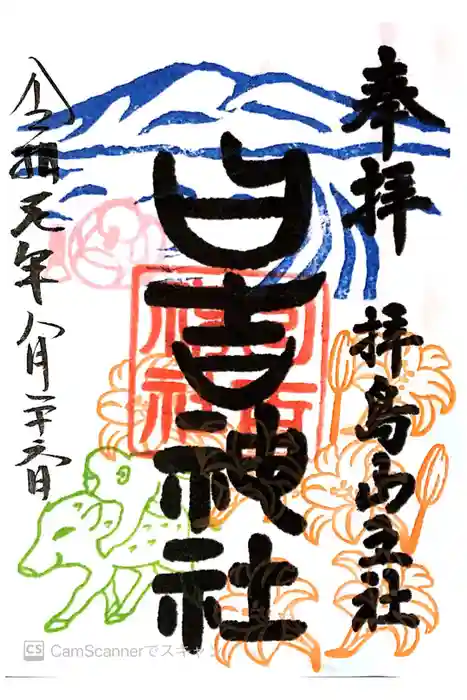 奉拝
拝島山王社
日吉神社
日吉
神社
令和元年八月二十六日
CS CamScannerでスキャン